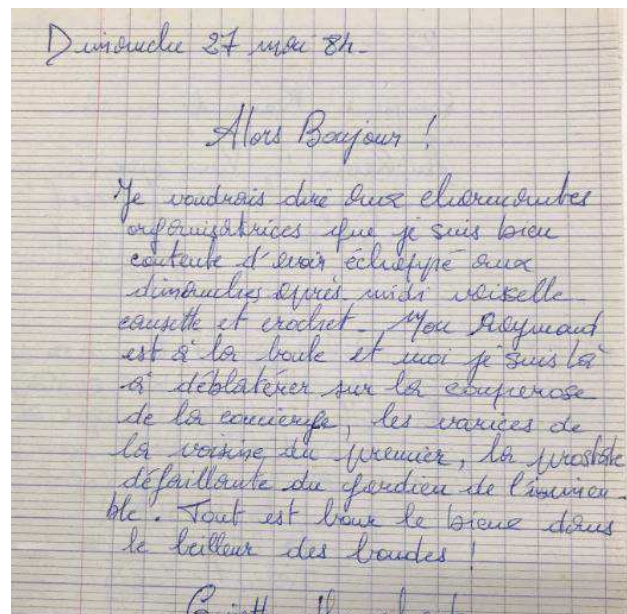 Dimanche 27 mai 8h.
Alors Boujour !
Je voudrais dire aux charmantes
organisatrices que je suis bien
contente d'avoir échappé aux
dimanches après midi vaisselle
causette et crochet. Mon Raymond
est à la boule et moi je suis là
à déblatérer sur la couperose
de la concierge, les varices de
la voisine du premier, la prostate
défaillante du gardien de l'immeu-
ble. Tout est bour le bieux dans
le beilleur des bondes !